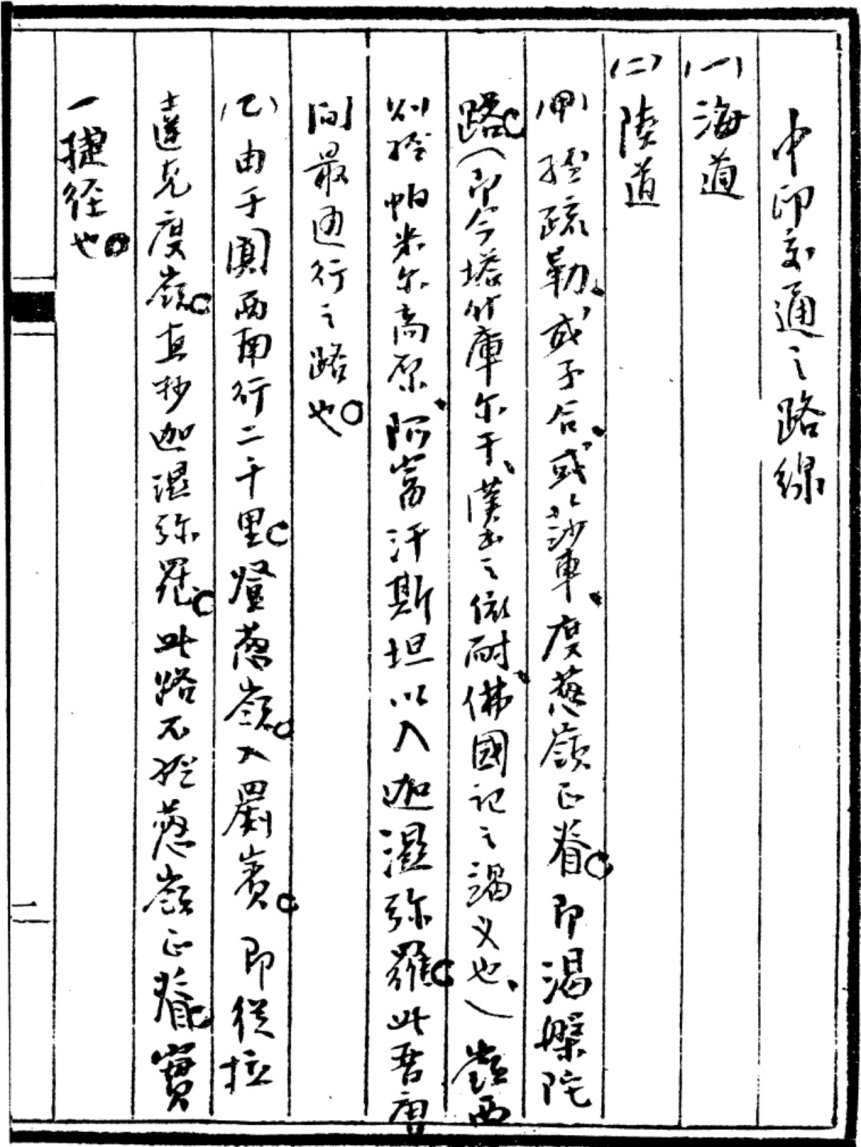 中印交通之路線
(一)海道
(二)陸道
(甲)經疏勒、或子合、或莎車、度葱嶺正脊。即渴槃陀
路。(即今塔什庫尔干、漢書之依耐、佛國記之竭义也、)嶺西
則經帕米尔高原、阿富汗斯坦以入迦濕弥羅。此晋唐
間最通行之路也。
(乙)由于闐西南行二千里。登葱嶺。入罽賓。即從拉
達克度嶺。直抄迦濕弥羅。此路不經葱嶺正脊。實
一捷径也。
一